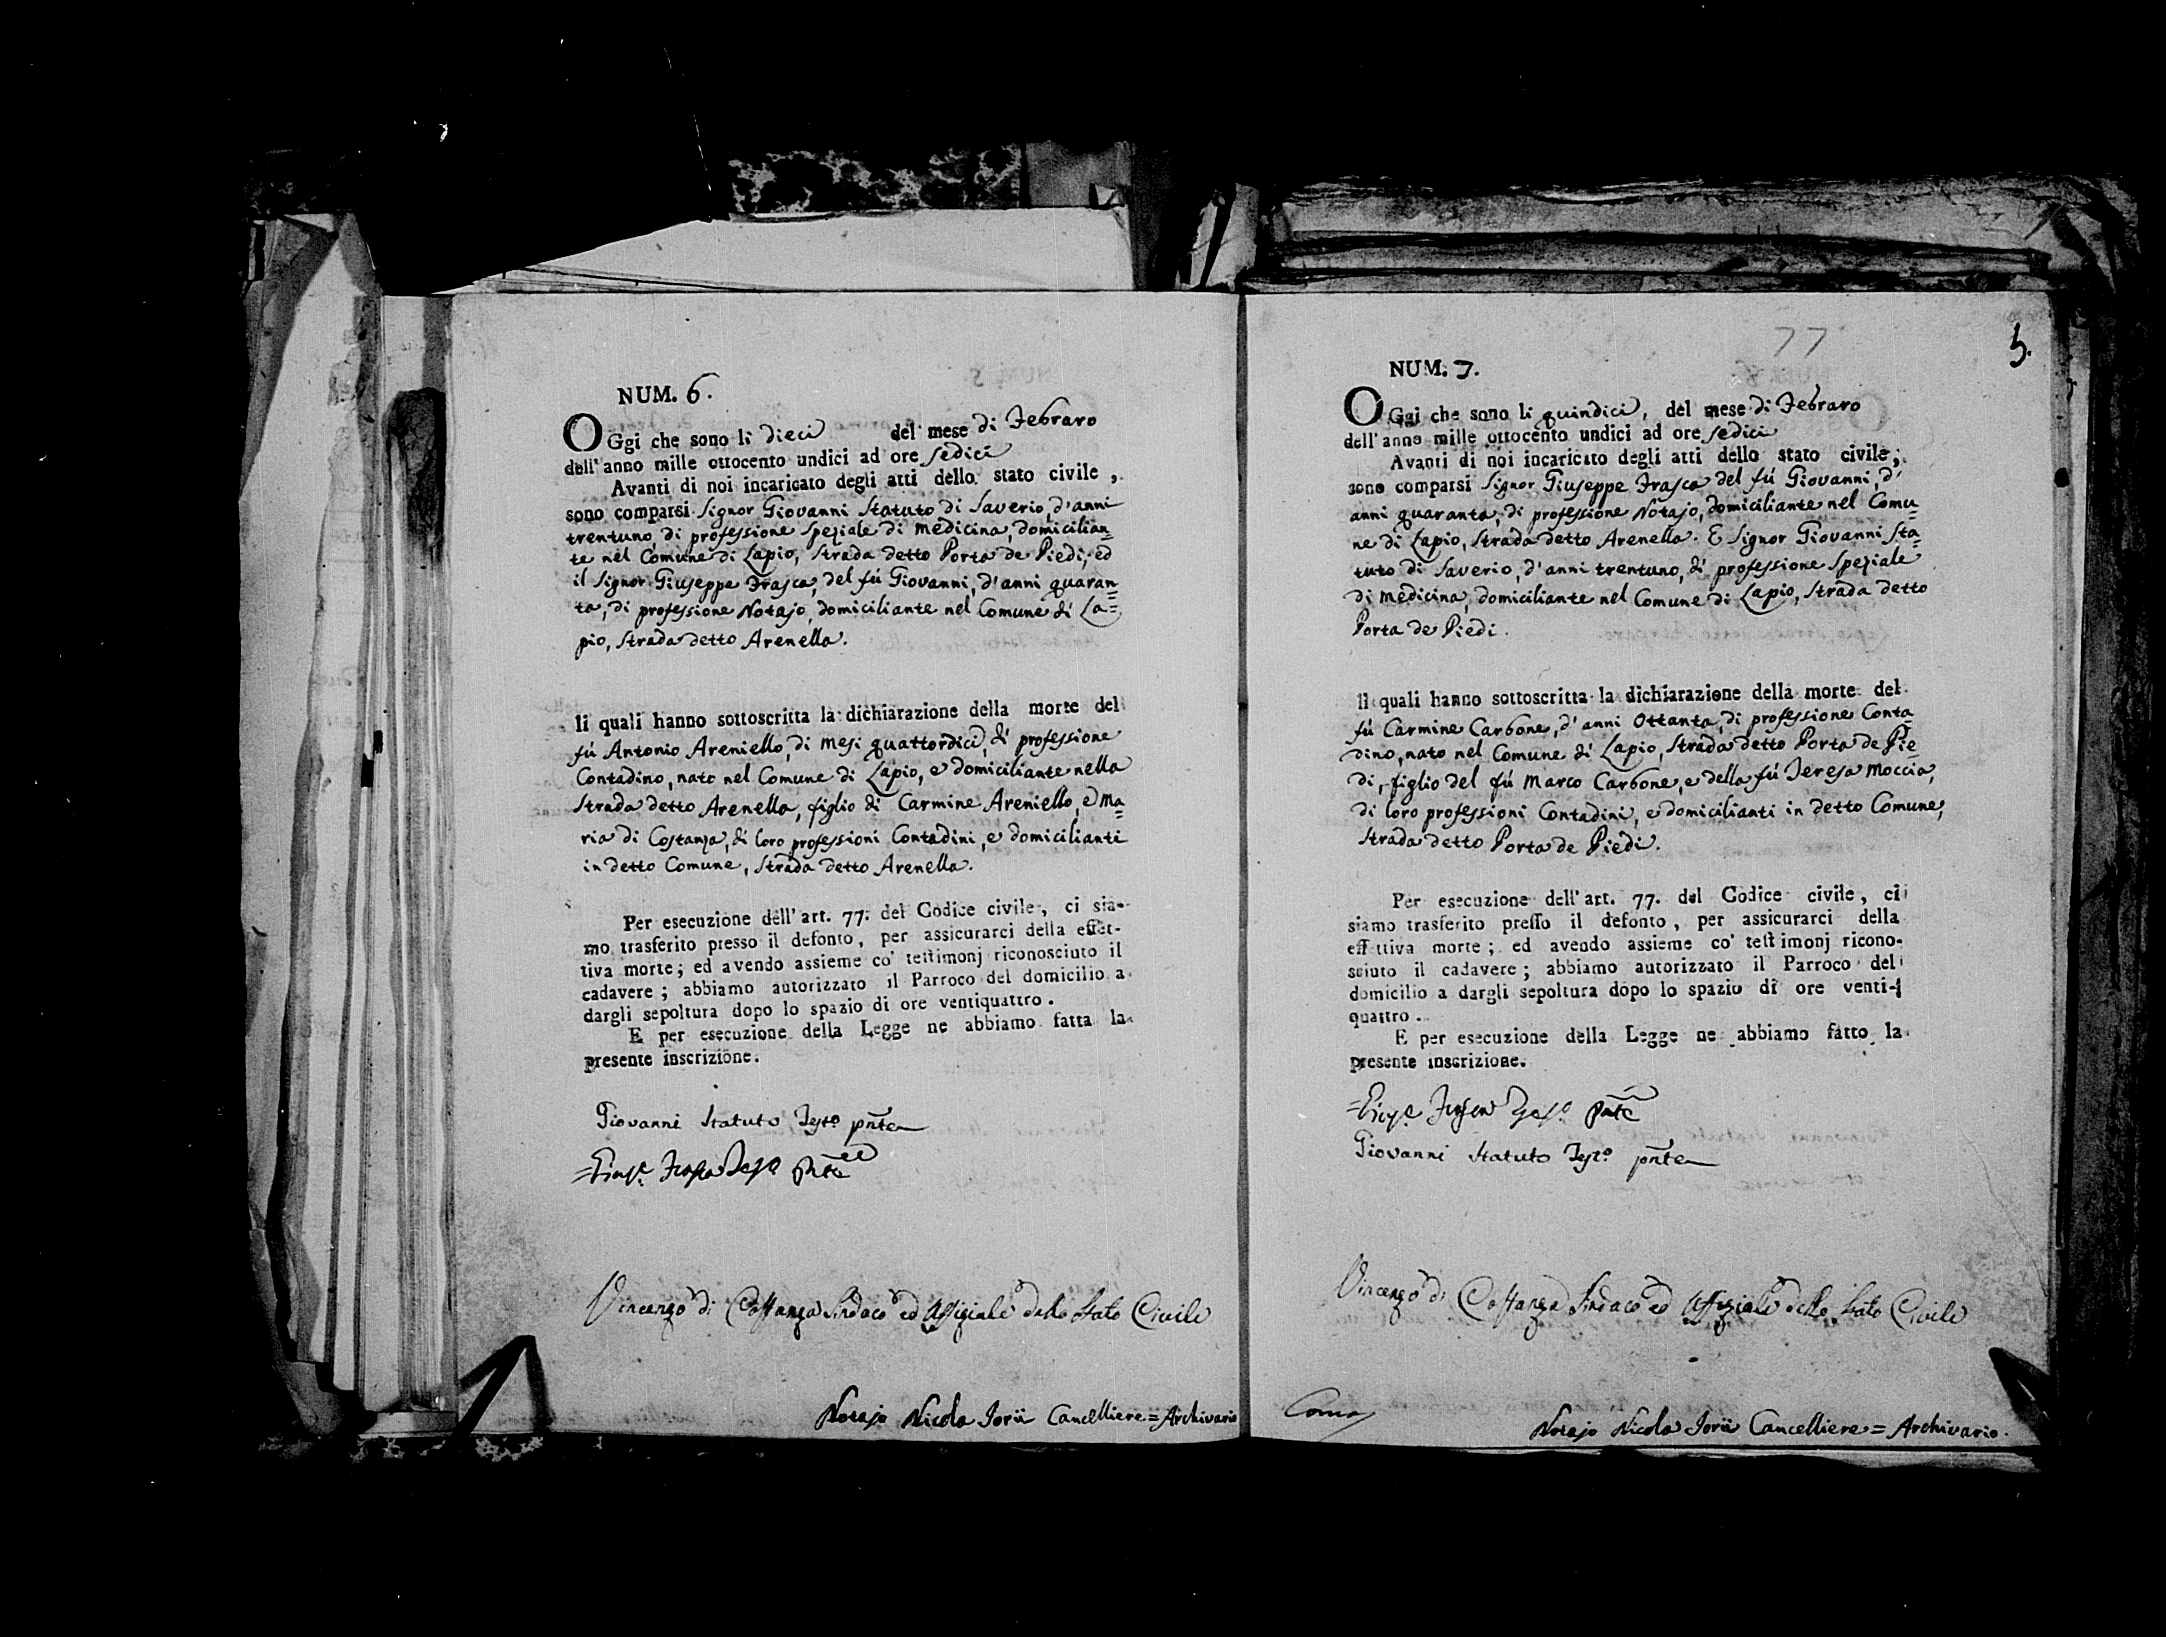 NUM. 6.
OGgi che sono li dieci del mese di Febraro
dell'anno mille ottocento undici ad ore sedici
Avanti di noi incaricato degli atti dello stato civile,
sono comparsi Signor Giovanni Statuto di Saverio, d'anni
trentuno, di professione Speziale di medicina, domicilian=
te nel Comune di Lapio, Strada detto Porta de Piedi, ed
il Signor Giuseppe Frasca, del fú Giovanni, d'anni quaran=
ta, di professione Notajo, domiciliante nel Comune di La=
pio, Strada detto Arenella.
li quali hanno sottoscritta la dichiarazione della morte del
fú Antonio Areniello, di mesi quattordici, di professione
Contadino, nato nel Comune di Lapio, e domiciliante nella
Strada detto Arenella, figlio di Carmine Areniello, e Ma=
ria di Costanza, di loro professioni Contadini, e domicilianti
in detto Comune, Strada detto Arenella.
Per esecuzione dell'art. 77. del Codice civile, ci sia-
mo trasferito presso il defonto, per assicurarci della effet-
tiva morte; ed avendo assieme co' testimonj riconosciuto il
cadavere; abbiamo autorizzato il Parroco del domicilio a
dargli sepoltura dopo lo spazio di ore ventiquattro.
E per esecuzione della Legge ne abbiamo fatta la
presente inscrizione.
Giovanni Statuto Testo pnte
Giuse Frasca Testo pnte
Vincenzo di Costanza Sindaco ed Affiziale dello Stato Civile
Notajo Nicola Jorii Cancelliere = Archivario
77
5.
NUM. 7.
OGgi che sono li quindici, del mese di Febraro
dell'anno mille ottocento undici ad ore sedici
Avanti di noi incaricato degli atti dello stato civile;
sono comparsi Signor Giuseppe Frasca del fú Giovanni, d'
anni quaranta, di professione Notajo, domiciliante nel Comu=
ne di Lapio, Strada detto Arenella. E Signor Giovanni Sta=
tuto di Saverio, d'anni trentuno, di professione Speziale
di medicina, domiciliante nel Comune di Lapio, Strada detto
Porta de Piedi.
li quali hanno sottoscritta la dichiarazione della morte del
fú Carmine Carbone, d'anni Ottanta, di professione Conta=
dino, nato nel Comune di Lapio, Strada detto Porta de Pie=
di, figlio del fú Marco Carbone, e della fú Teresa Moccia,
di loro professioni Contadini, e domicilianti in detto Comune,
Strada detto Porta de Piedi.
Per esecuzione dell'art. 77. del Codice civile, ci
siamo trasferito presso il defonto, per assicurarci della
effettiva morte; ed avendo assieme co' testimonj ricono-
sciuto il cadavere; abbiamo autorizzato il Parroco del
domicilio a dargli sepoltura dopo lo spazio di ore venti-
quattro.
E per esecuzione della Legge ne abbiamo fatto la
presente inscrizione.
Giuse Frasca Testo pnte
Giovanni Statuto Testo pnte
Vincenzo di Costanza Sindaco ed Affiziale dello Stato Civile
Notajo Nicola Jorii Cancelliere = Archivario.